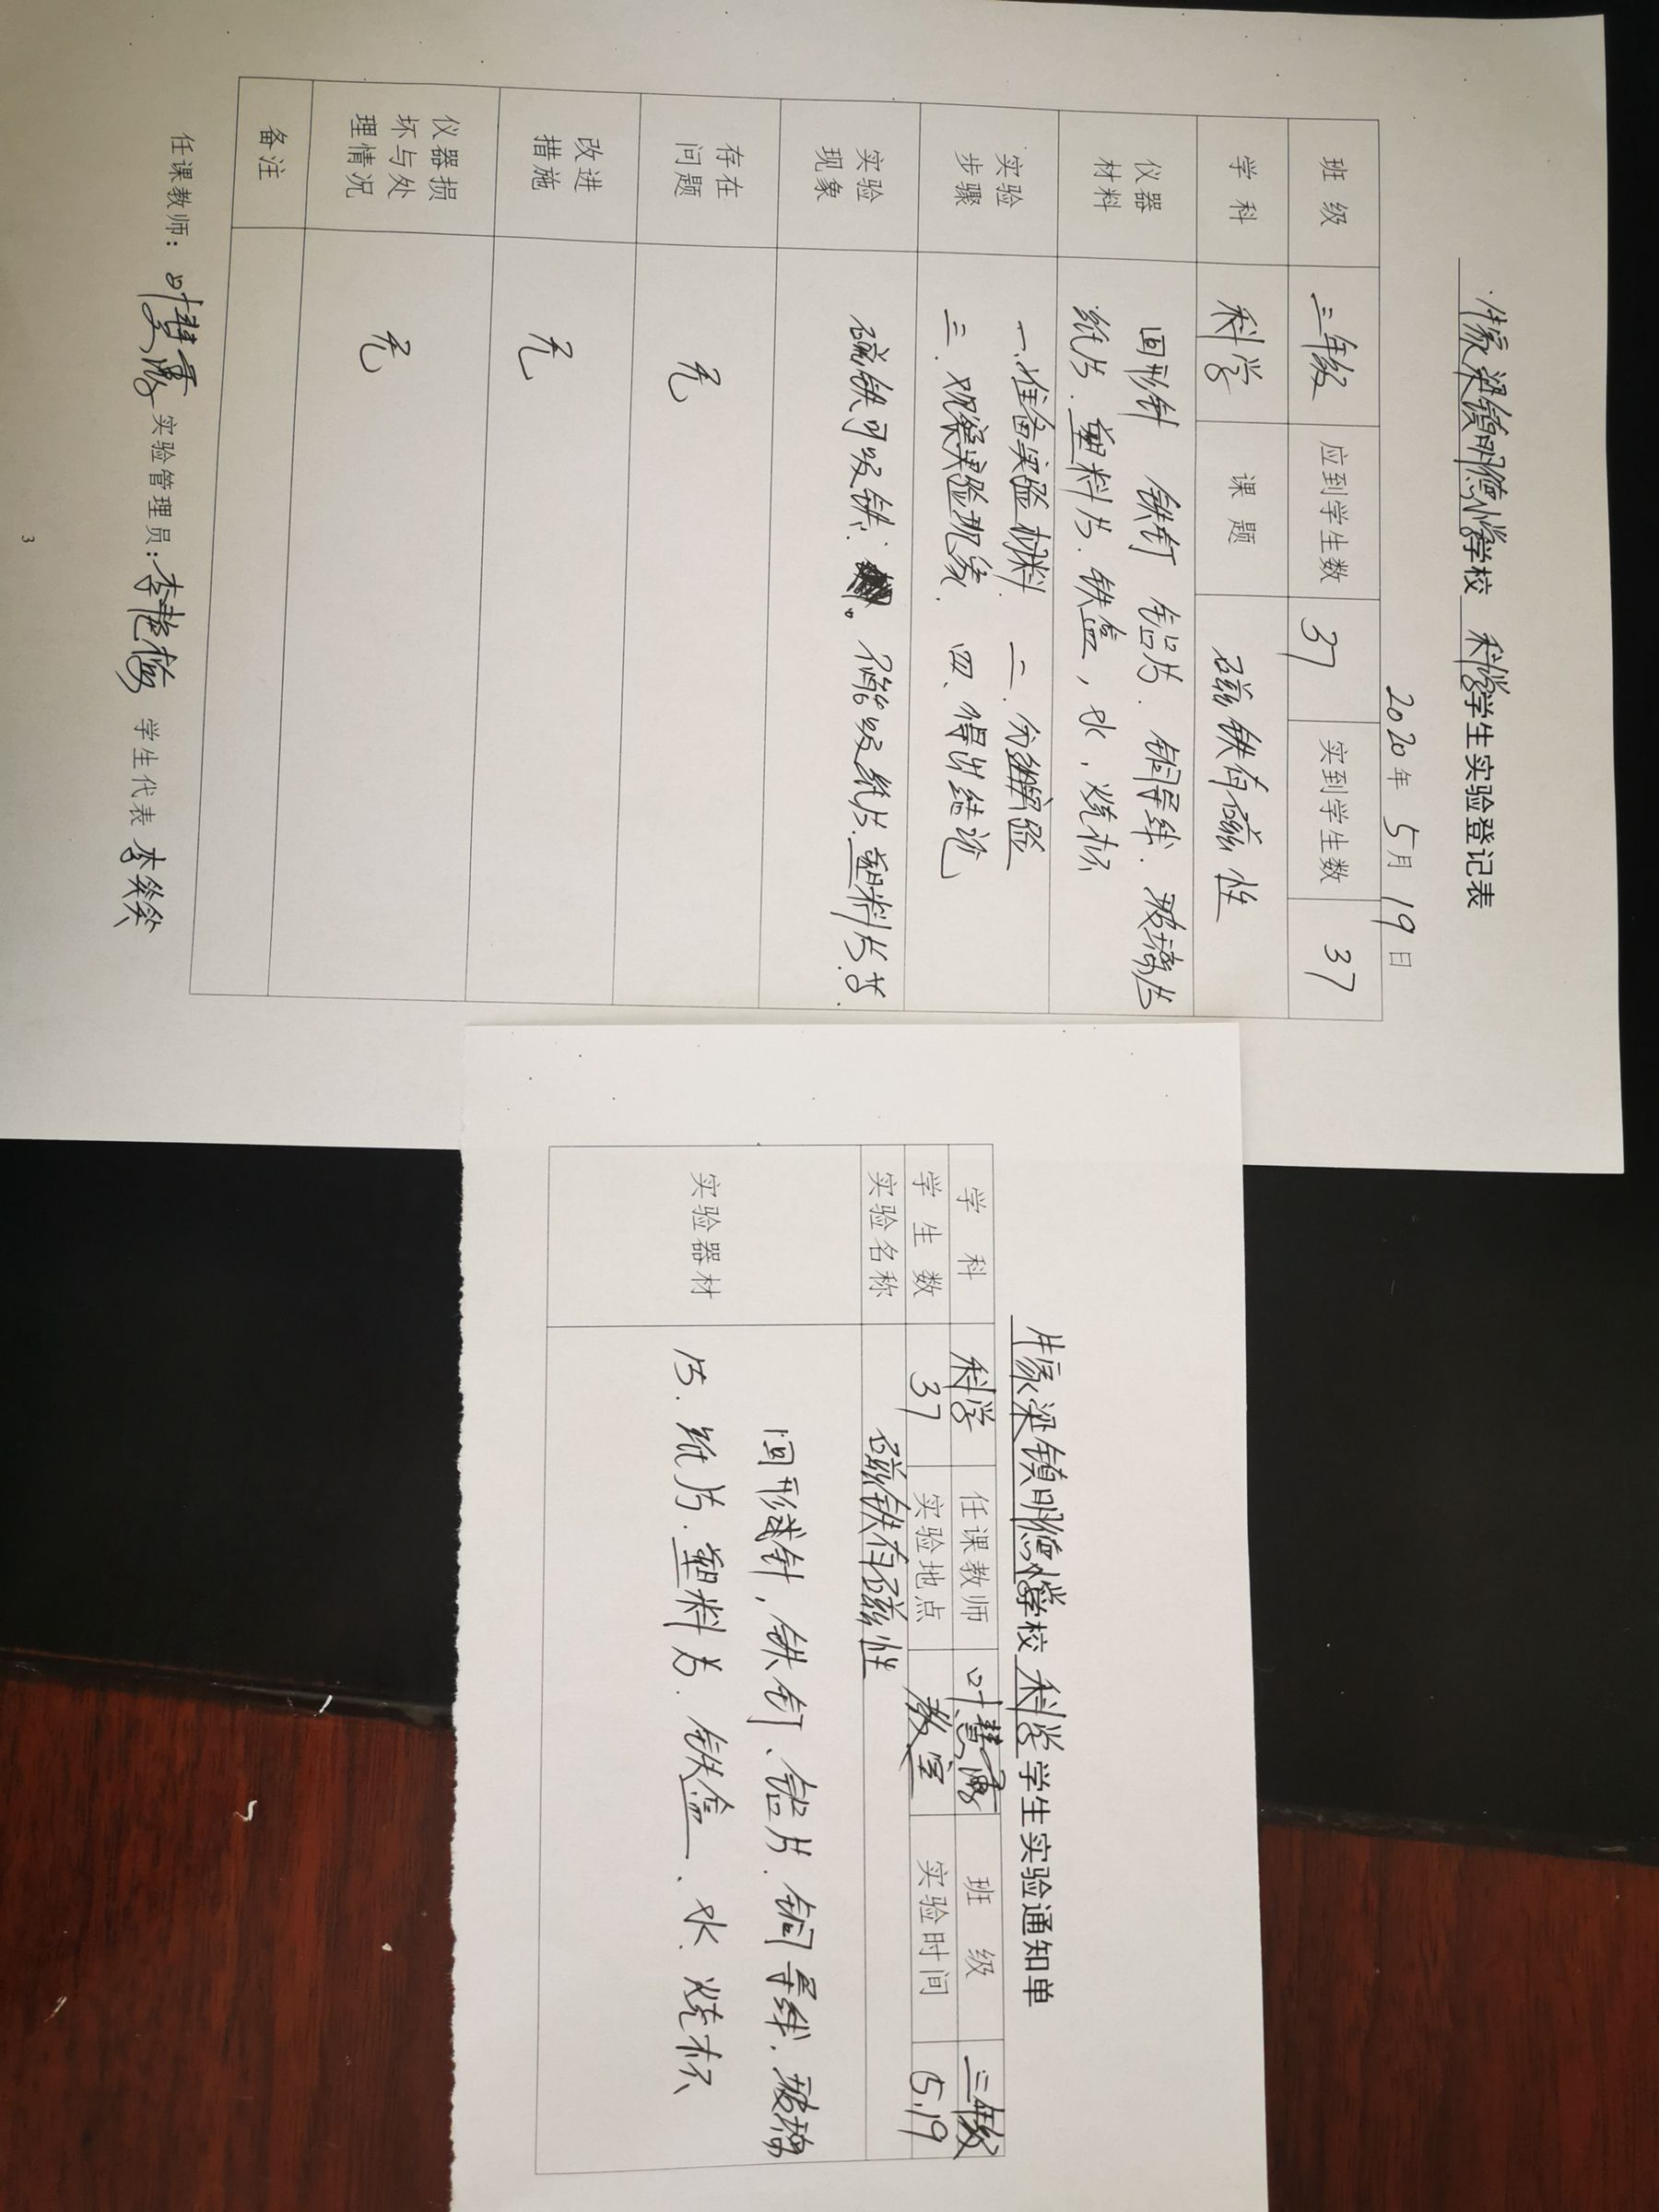 家梁镇明德小学学校 科学学生实验登记表
2020年 5月 19日
班 级 三年级 应到学生数 37 实到学生数 37
学 科 科学 课 题 磁铁有磁性
仪器 材料 回形针 铁钉 铝片. 铜导线. 玻璃片
纸片. 塑料片. 铁盒, 水, 烧杯
实验 步骤 一、准备实验材料. 二. 分组实验
三. 观察实验现象. 四、得出结论
实验 现象 磁铁可吸铁; 。不能吸纸片.塑料片.等.
存在 问题 无
改进 措施 无
仪器损 坏与处 理情况 无
备注
任课教师: 叶慧霞 实验管理员: 李艳梅 学生代表
3
家梁镇明德小学学校 科学学生实验通知单
学 科 科学 任课教师 叶慧霞 班 级 三年级
学 生 数 37 实验地点 教室 实验时间 5.19
实验名称 磁铁有磁性
实验器材 回形针, 铁钉、铝片. 铜导线. 玻璃
片. 纸片. 塑料片. 铁盒、水. 烧杯